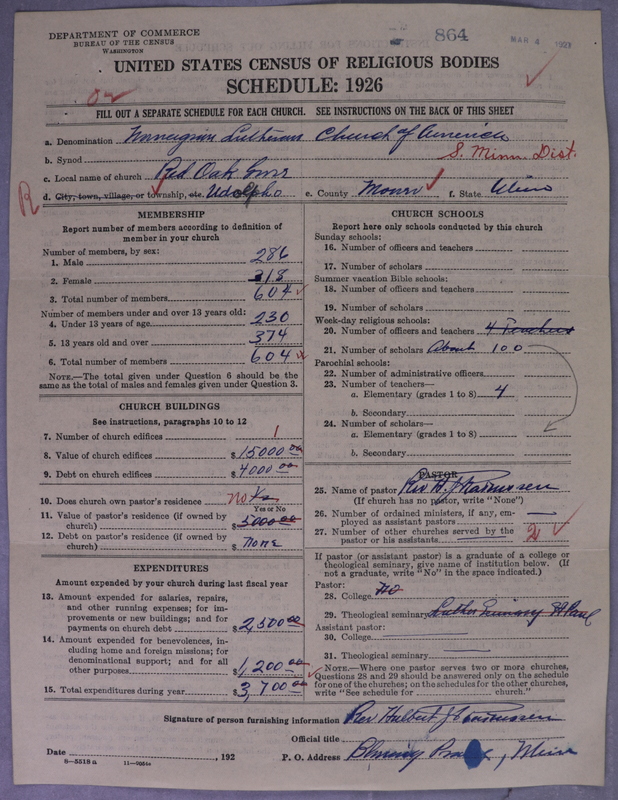 DEPARTMENT OF COMMERCE
BUREAU OF THE CENSUS
WASHINGTON
864
MAR 4 1927
UNITED STATES CENSUS OF RELIGIOUS BODIES
SCHEDULE: 1926
FILL OUT A SEPARATE SCHEDULE FOR EACH CHURCH. SEE INSTRUCTIONS ON THE BACK OF THIS SHEET
a. Denomination Norwegian Lutheran Church of America
b. Synod S. Minn. Dist.
c. Local name of church Red Oak Grove
R d. City, town, village, or township, etc. Udolpho e. County Mower f. State Minn
MEMBERSHIP
Report number of members according to definition of
member in your church
Number of members, by sex:
1. Male 286
2. Female 318
3. Total number of members 604
Number of members under and over 13 years old:
4. Under 13 years of age 230
5. 13 years old and over 374
6. Total number of members 604
NOTE.—The total given under Question 6 should be the
same as the total of males and females given under Question 3.
CHURCH BUILDINGS
See instructions, paragraphs 10 to 12
7. Number of church edifices 1
8. Value of church edifices $15000 00
9. Debt on church edifices $4000 00
10. Does church own pastor's residence no Yes
Yes or No
11. Value of pastor's residence (if owned by
church) $5000 00
12. Debt on pastor's residence (if owned by
church) $ none
EXPENDITURES
Amount expended by your church during last fiscal year
13. Amount expended for salaries, repairs,
and other running expenses; for im-
provements or new buildings; and for
payments on church debt $2,500 00
14. Amount expended for benevolences, in-
cluding home and foreign missions; for
denominational support; and for all
other purposes $1,200 00
15. Total expenditures during year $3,700 00
CHURCH SCHOOLS
Report here only schools conducted by this church
Sunday schools:
16. Number of officers and teachers
17. Number of scholars
Summer vacation Bible schools:
18. Number of officers and teachers
19. Number of scholars
Week-day religious schools:
20. Number of officers and teachers 4 Teachers
21. Number of scholars About 100
Parochial schools:
22. Number of administrative officers
23. Number of teachers—
a. Elementary (grades 1 to 8) 4
b. Secondary
24. Number of scholars—
a. Elementary (grades 1 to 8)
b. Secondary
PASTOR
25. Name of pastor Rev H. J. Rasmussen
(If church has no pastor, write "None")
26. Number of ordained ministers, if any, em-
ployed as assistant pastors —
27. Number of other churches served by the
pastor or his assistants 2
If pastor (or assistant pastor) is a graduate of a college or
theological seminary, give name of institution below. (If
not a graduate, write "No" in the space indicated.)
Pastor:
28. College No
29. Theological seminary Luther Seminary St Paul
Assistant pastor:
30. College
31. Theological seminary
NOTE.—Where one pastor serves two or more churches,
Questions 28 and 29 should be answered only on the schedule
for one of the churches; on the schedules for the other churches,
write "See schedule for church."
Signature of person furnishing information Rev Halbert J Rasmussen
Official title
Date , 192 P. O. Address Blooming Prairie, Minn
8—5518 a 11—9054